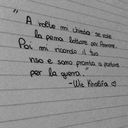 "A volte mi chiedo se vale
la pena lottare per l'amore.
Poi mi ricordo il tuo
viso e sono pronto a partire
per la guerra."
-Wiz Khalifa ♡